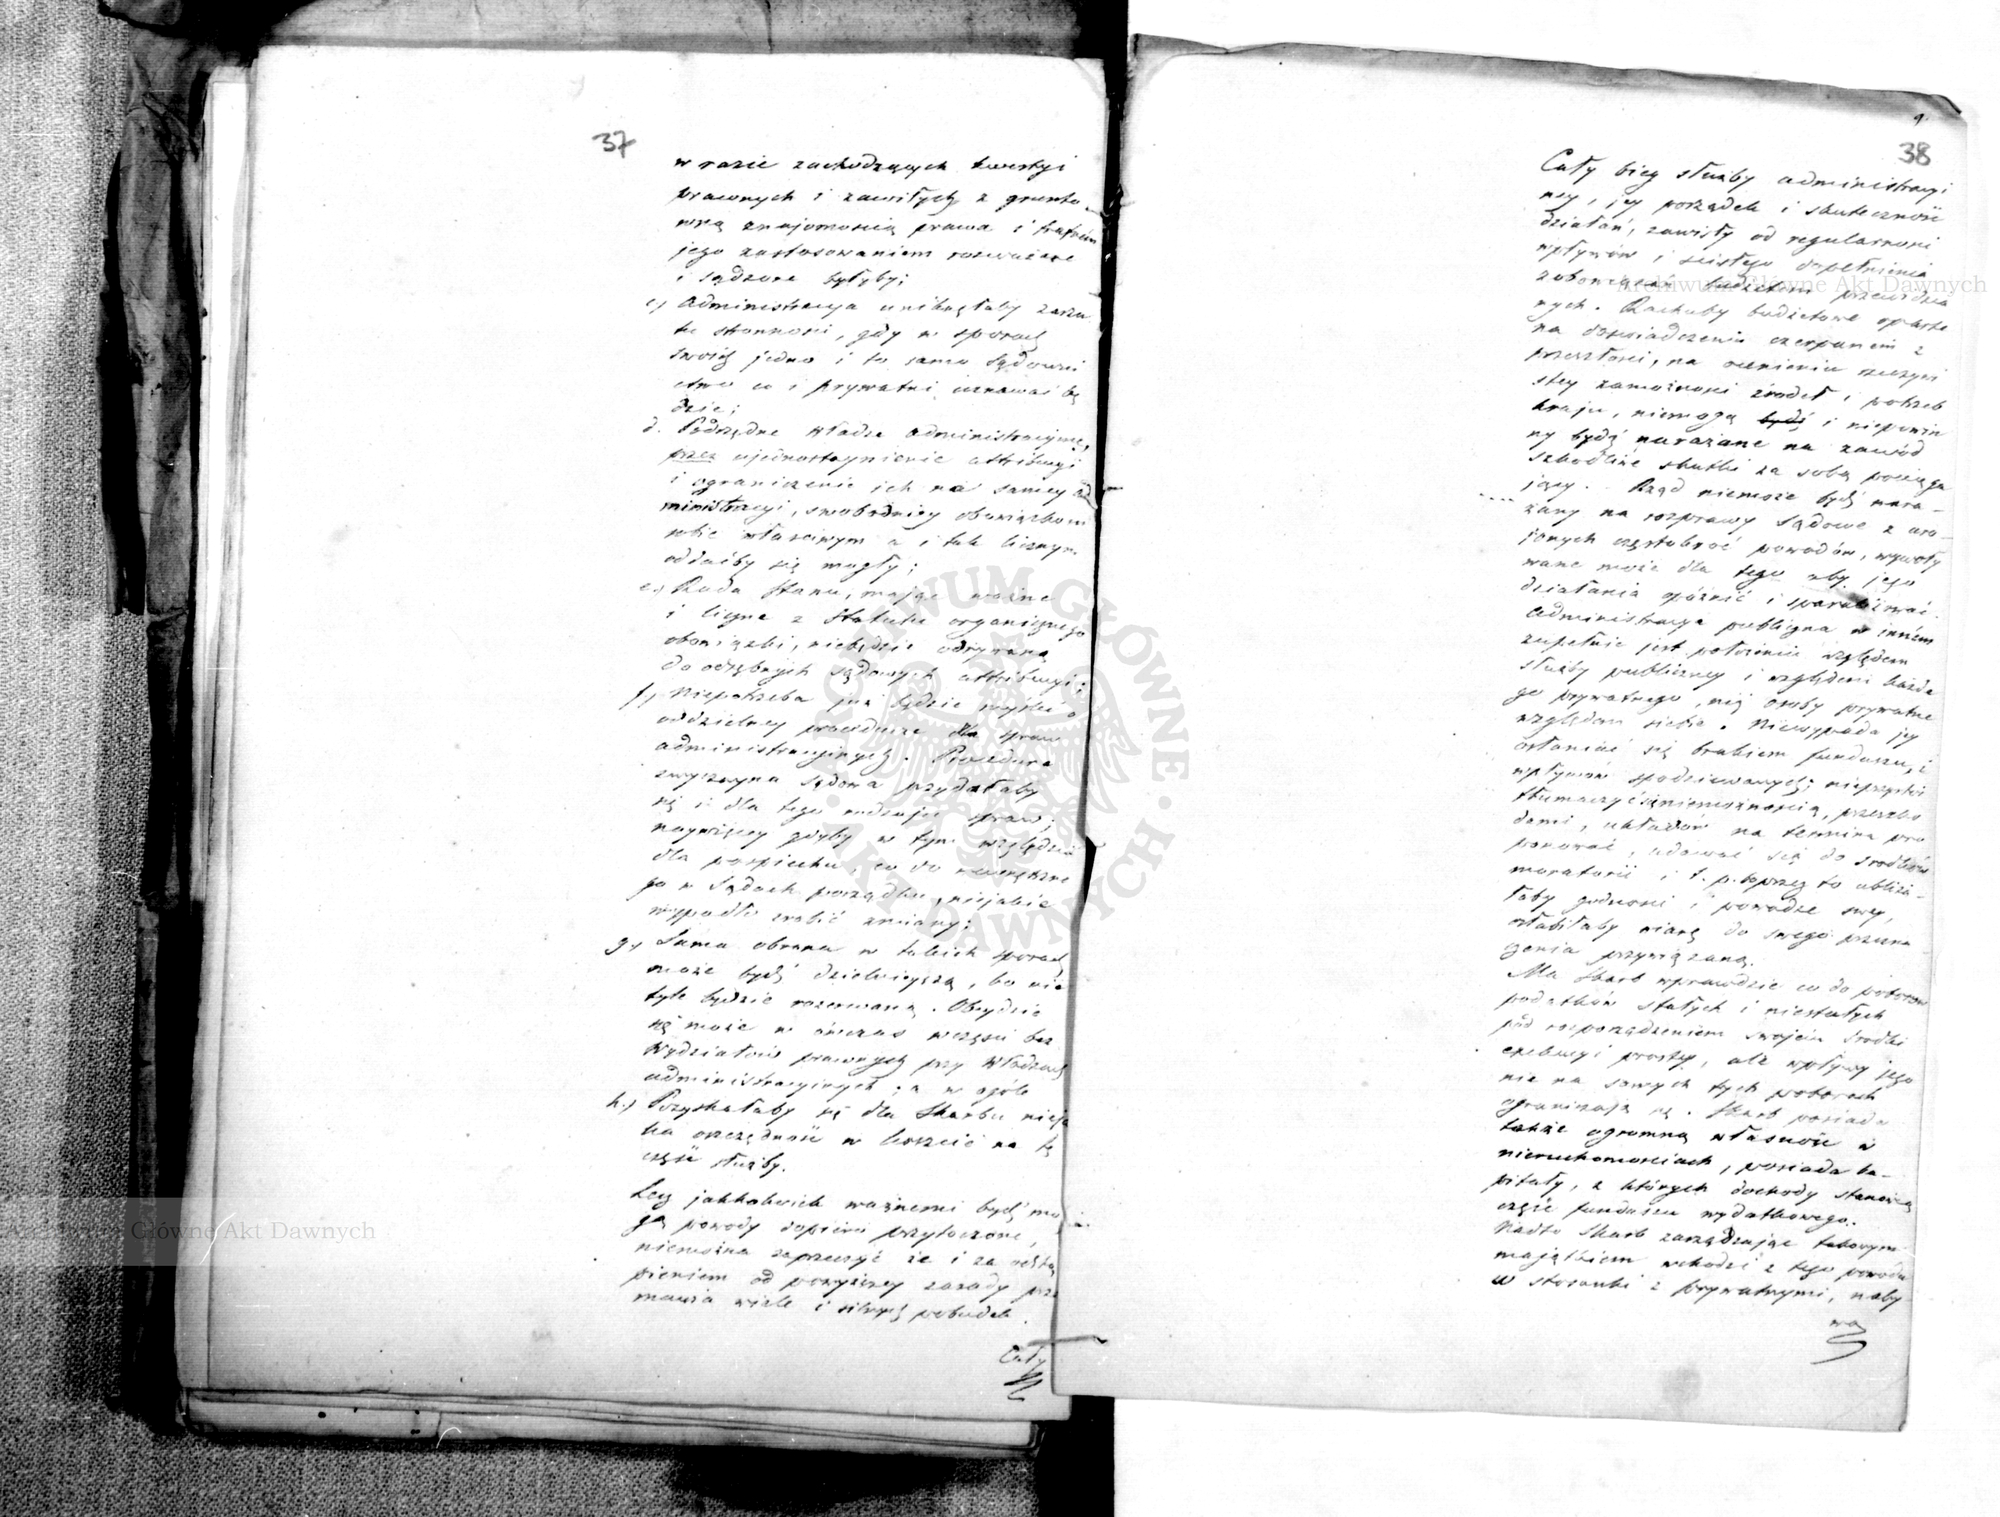 37
w razie zachodzących kwestyi
prawnych i zawiłych z grunto
wną znajomością prawa i trafném
jego zastosowaniem rozważane
i sądzone byłyby;
c) Administracya uniknęłaby zarzu
tu stronności, gdy w sporach
swoich jedno i to samo sądowni
ctwo co i prywatni uznawać bę
dzie;
d. Podrzędne władze administracyjne,
przez ujednostajnienie attribucyi
i ograniczenie ich na samey ad
ministracyi, swobodniey obowiązkom
sobie właściwym a i tak licznym
oddaćby się mogły;
e.) Rada Stanu, mając ważne
i liczne z Statutu organicznego
obowiązki, niebędzie odrywaną
do odrębnych sądowych attribucyi;
f.) Niepotrzeba już będzie myśleć o
oddzielney procedurze dla spraw
administracyinych. Procedura
zwyczayna sądowa przydałaby
się i dla tego rodzaju spraw;
naywięcey gdyby w tym względzie
dla pospiechu, co do wewnętrzne
go w Sądach porządku, niejakie
wypadło zrobić zmiany;
g.) Sama obrona w takich sporach
może bydź dzielnieyszą, bo nie
tyle będzie rozerwaną. Obeydzie
się może w ówczas w części bez
Wydziałów prawnych przy Władzach
administracyinych; a w ogóle
h.) Pozyskałaby się dla Skarbu nieja
ka oszczędność w koszcie na tę
część służby.
Lecz jakkolwiek ważnemi bydź mo
gą powody dopiero przytoczone,
niemożna zaprzeczyć że i za odstą
pieniem od powyższey zasady prze
mawia wiele i silnych pobudek.
Cały
38
Cały bieg służby administracyi
ney, jey porządek i skuteczność
działań, zawisły od regularności
wpływów i ścisłego dopełnienia
zobowiązań budżetem przewidzia
nych. Rachuby budżetowe oparte
na doświadczeniu czerpanem z
przeszłości, na ocenieniu rzeczywi
stey zamożności źródeł i potrzeb
kraju, niemogą bydź i niepowin
ny bydź narażane na zawód
szkodliwe skutki za sobą pociąga
jący. Rząd niemoże bydź nara-
żany na rozprawy Sądowe z uro-
jonych częstokroć powodów, wywoły
wane może dla tego aby jego
działania opóźnić i sparaliżować.
Administracya publiczna w inném
zupełnie jest położeniu względem
służby publiczney i względem każde
go prywatnego, niż osoby prywatne
względem siebie. Niewypada jey
osłaniać się brakiem funduszu, i
wpływów spodziewanych; nieprzystoi
tłumaczyć się niemożnością, przeszko
dami, układów na termina pro
ponować, udawać się do środków
moratorii i t. p. boprzez to ubliża-
łaby godności i powadze swey,
osłabiłaby wiarę do swego przezna
czenia przywiązaną.
Ma Skarb wprawdzie co do poborów
podatków stałych i niestałych
pod rozporządzeniem swojém środki
exekucyi prostey, ale wpływy jego
nie na samych tych poborach
ograniczają się. Skarb posiada
także ogromną własność w
nieruchomościach, posiada ka-
pitały, z których dochody stanowią
część funduszu wydatkowego.
Nadto Skarb zarządzając takowym
majątkiem wchodzi z tego powodu
w stosunki z prywatnymi, naby
wa
Archiwum Główne Akt Dawnych
Archiwum Główne Akt Dawnych
ARCHIWUM GŁÓWNE AKT DAWNYCH